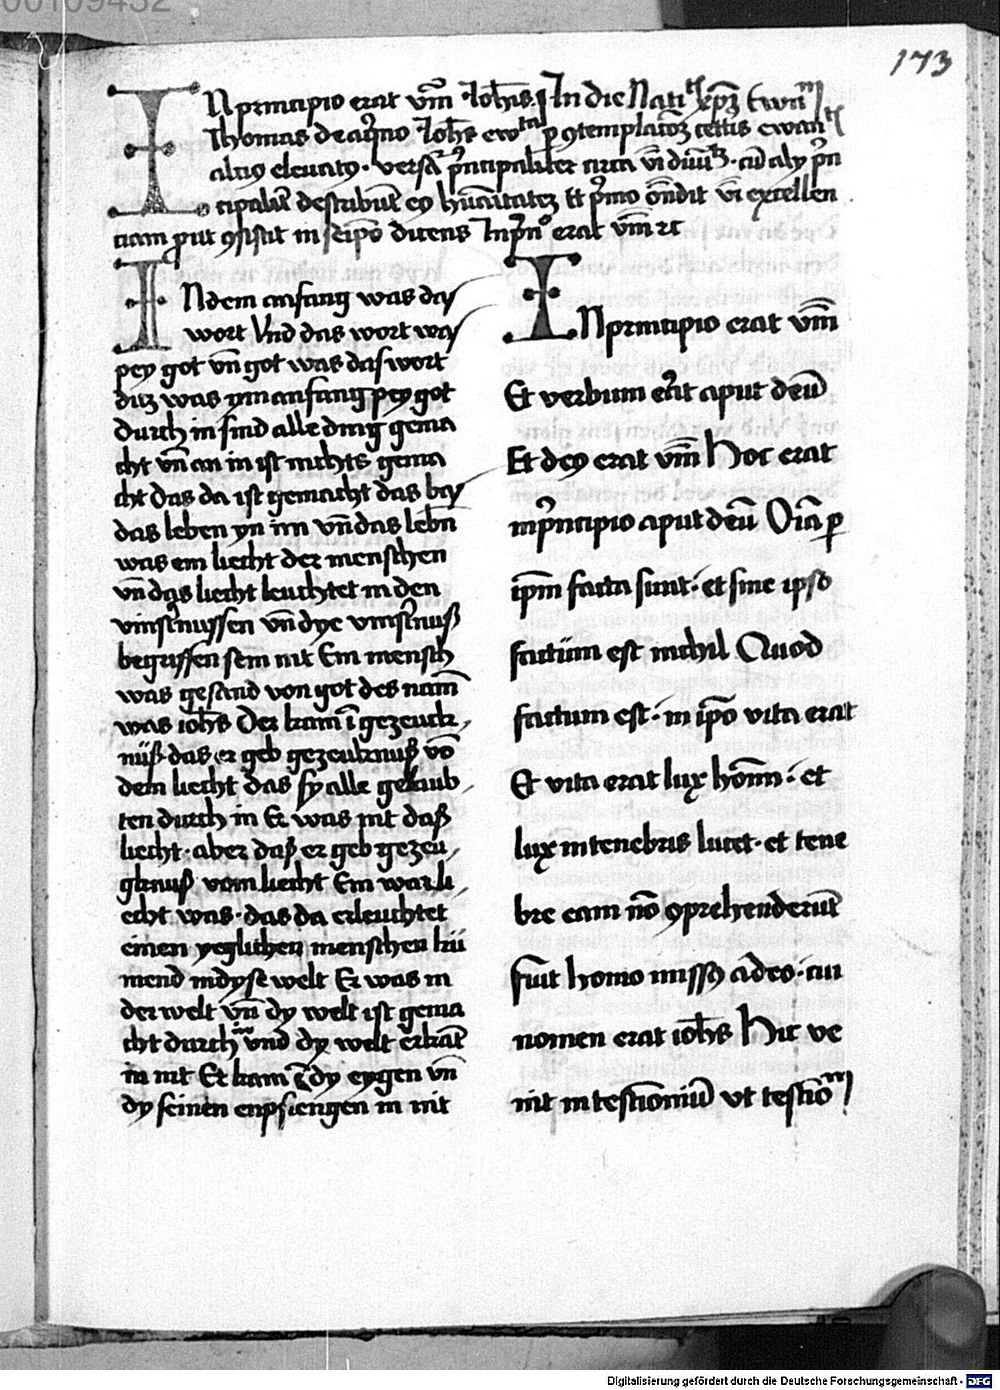 00109432
173
In principio erat vm̄ Joh̄is In die Nati xp̄ʒ Ewā
Thomas de aq̄no Joh̄s ew p ꝯtemplacōʒ celtis ewan
altiꝰ eleuatꝰ · versa pͥncipaliter circa vi diui · cū aly pͥn
cipalit̄ describūt eꝰ hūanitateʒ Et pͥmo ondit vi excellen
ciam put ꝯsistit in pͥncipo dicens In pͥnͦ erat vm̄ ꝛc
In dem anfang was daſ
wort Vnd das wort waſ
pey got vn̄ got was daſ wort
diʒ was ym anfang pey got
durch in sind alle ding gema
cht vn̄ an in ist nichts gema
cht das da ist gemacht das waſ
das leben yn im vn̄ das lebn̄
was ein liecht der menschen
vn̄ das liecht leuchtet in den
vinst̄nussen vn̄ dye vinst̄nuß
begriffen sein nit Ein mensch
was gesand von got des nam̄
was ioh̄s Der kam ī gezeuck,
nüß das er geb gezeuknuß vō
dem liecht das sy alle gelaub,
ten durch in Er was nit daß
liecht · aber daß er geb gezeu,
gknuß vom liecht Ein war li,
echt was · das da erleuchtet
einen yeglichen menschen kü
mend in dyse welt Er was in
der welt vn̄ dy welt ist gema
cht durch in vnd dy welt erkāt
in nit Er kam ī dy eygen vn̄
dy seinen enpfiengen in nit
In principio erat vm̄
Et verbum erat aput deū
Et deꝰ erat vm̄ Hoc erat
in pͥncipio aput deū Oīa ꝑ
ip̄m facta sunt · et sine ipso
factūm est nichil Quod
factum est · in ip̄o vita erat
Et vita erat lux hom̄n · et
lux in tenebris lucet · et tene
bre eam nō ꝯprehenderūt
fuit homo missꝰ a deo · cui
nomen erat ioh̄s Hic ve
nit in testīoniū vt testīo
Digitalisierung gefördert durch die Deutsche Forschungsgemeinschaft - DFG